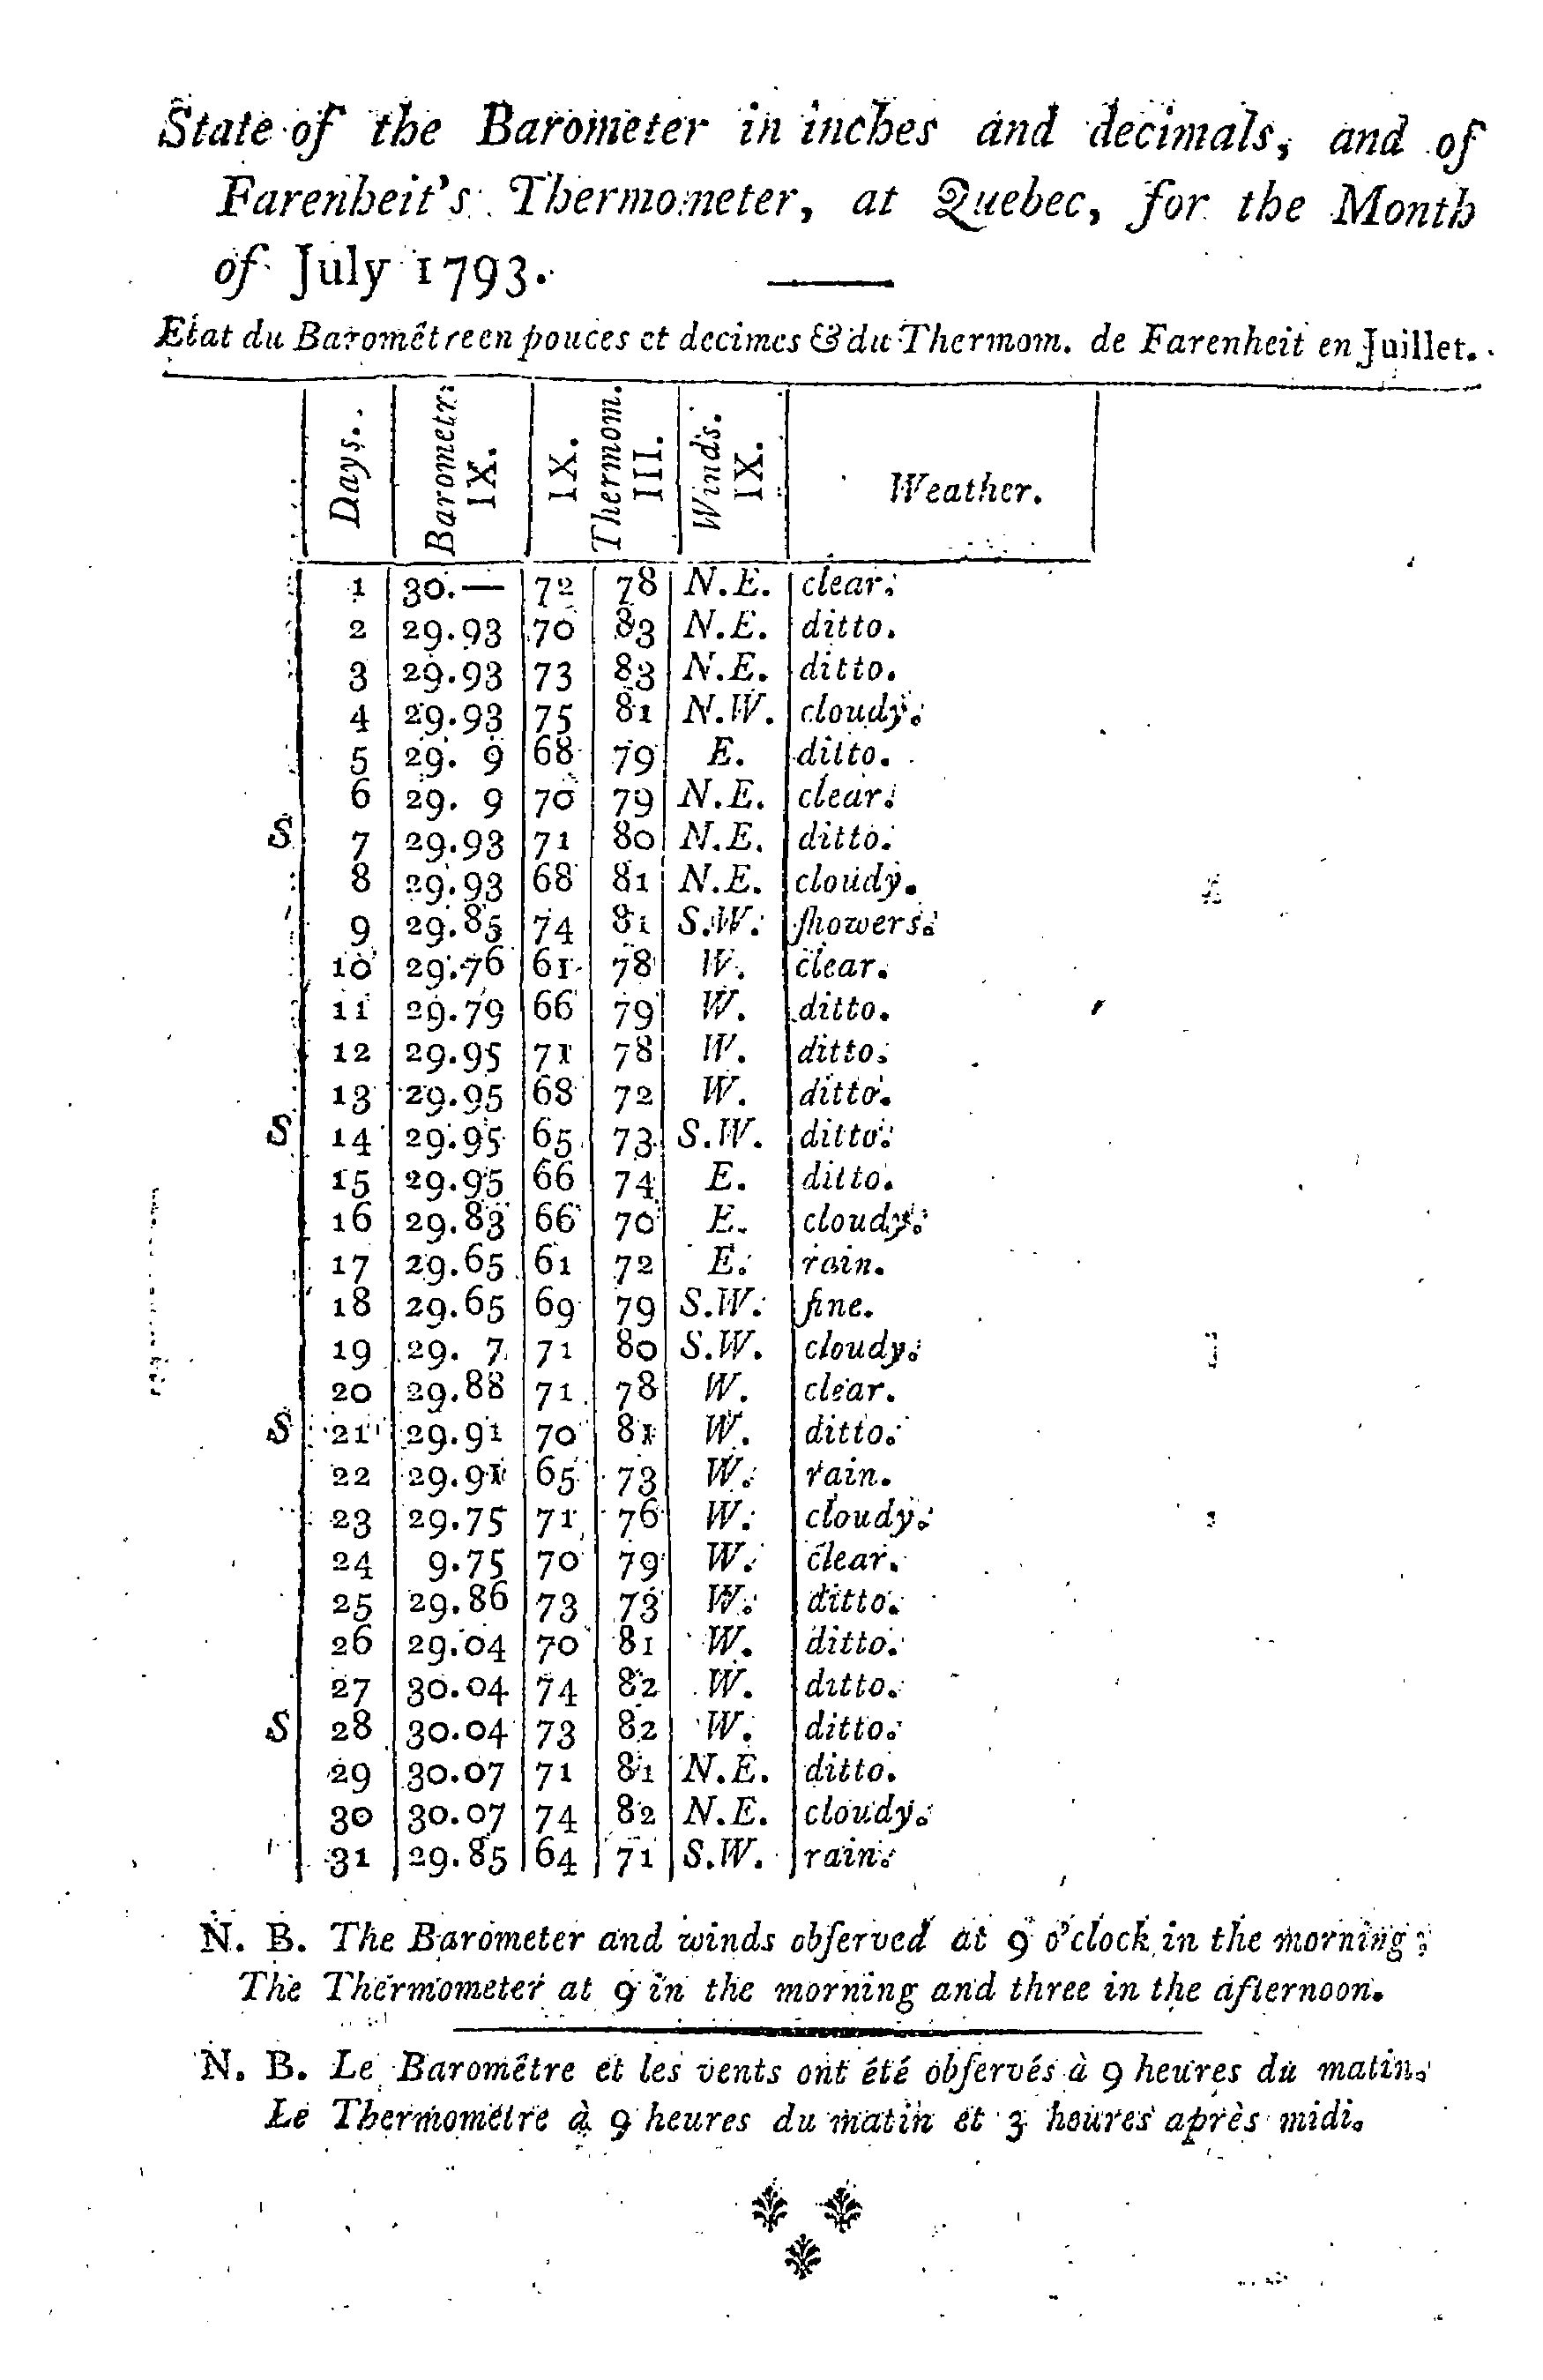 State of the Barometer in inches and decimals, and of
Farenheit's Thermometer, at Quebec, for the Month
of July 1793.
Etat du Barométre en pouces et decimes & du Thermom. de Farenheit en Juillet.
Days. Barometr. IX. IX. Thermom. III. Winds. IX. Weather.
1 30.— 72 78 N.E. clear.
2 29.93 70 83 N.E. ditto.
3 29.93 73 83 N.E. ditto.
4 29.93 75 81 N.W. cloudy.
5 29. 9 68 79 E. ditto.
6 29. 9 70 79 N.E. clear.
S 7 29.93 71 80 N.E. ditto.
8 29.93 68 81 N.E. cloudy.
9 29.85 74 81 S.W. ſhowers.
10 29.76 61 78 W. clear.
11 29.79 66 79 W. ditto.
12 29.95 71 78 W. ditto.
13 29.95 68 72 W. ditto.
S 14 29.95 65 73 S.W. ditto.
15 29.95 66 74 E. ditto.
16 29.83 66 70 E. cloudy.
17 29.65 61 72 E. rain.
18 29.65 69 79 S.W. fine.
19 29. 7 71 80 S.W. cloudy.
20 29.88 71 78 W. clear.
S 21 29.91 70 81 W. ditto.
22 29.91 65 73 W. rain.
23 29.75 71 76 W. cloudy.
24 9.75 70 79 W. clear.
25 29.86 73 73 W. ditto.
26 29.04 70 81 W. ditto.
27 30.04 74 82 W. ditto.
S 28 30.04 73 82 W. ditto.
29 30.07 71 81 N.E. ditto.
30 30.07 74 82 N.E. cloudy.
31 29.85 64 71 S.W. rain.
N. B. The Barometer and winds obſerved at 9 o'clock in the morning;
The Thermometer at 9 in the morning and three in the afternoon.
N. B. Le Baromêtre et les vents ont été obſervés à 9 heures du matin.
Le Thermométre à 9 heures du matin et 3 heures après midi.